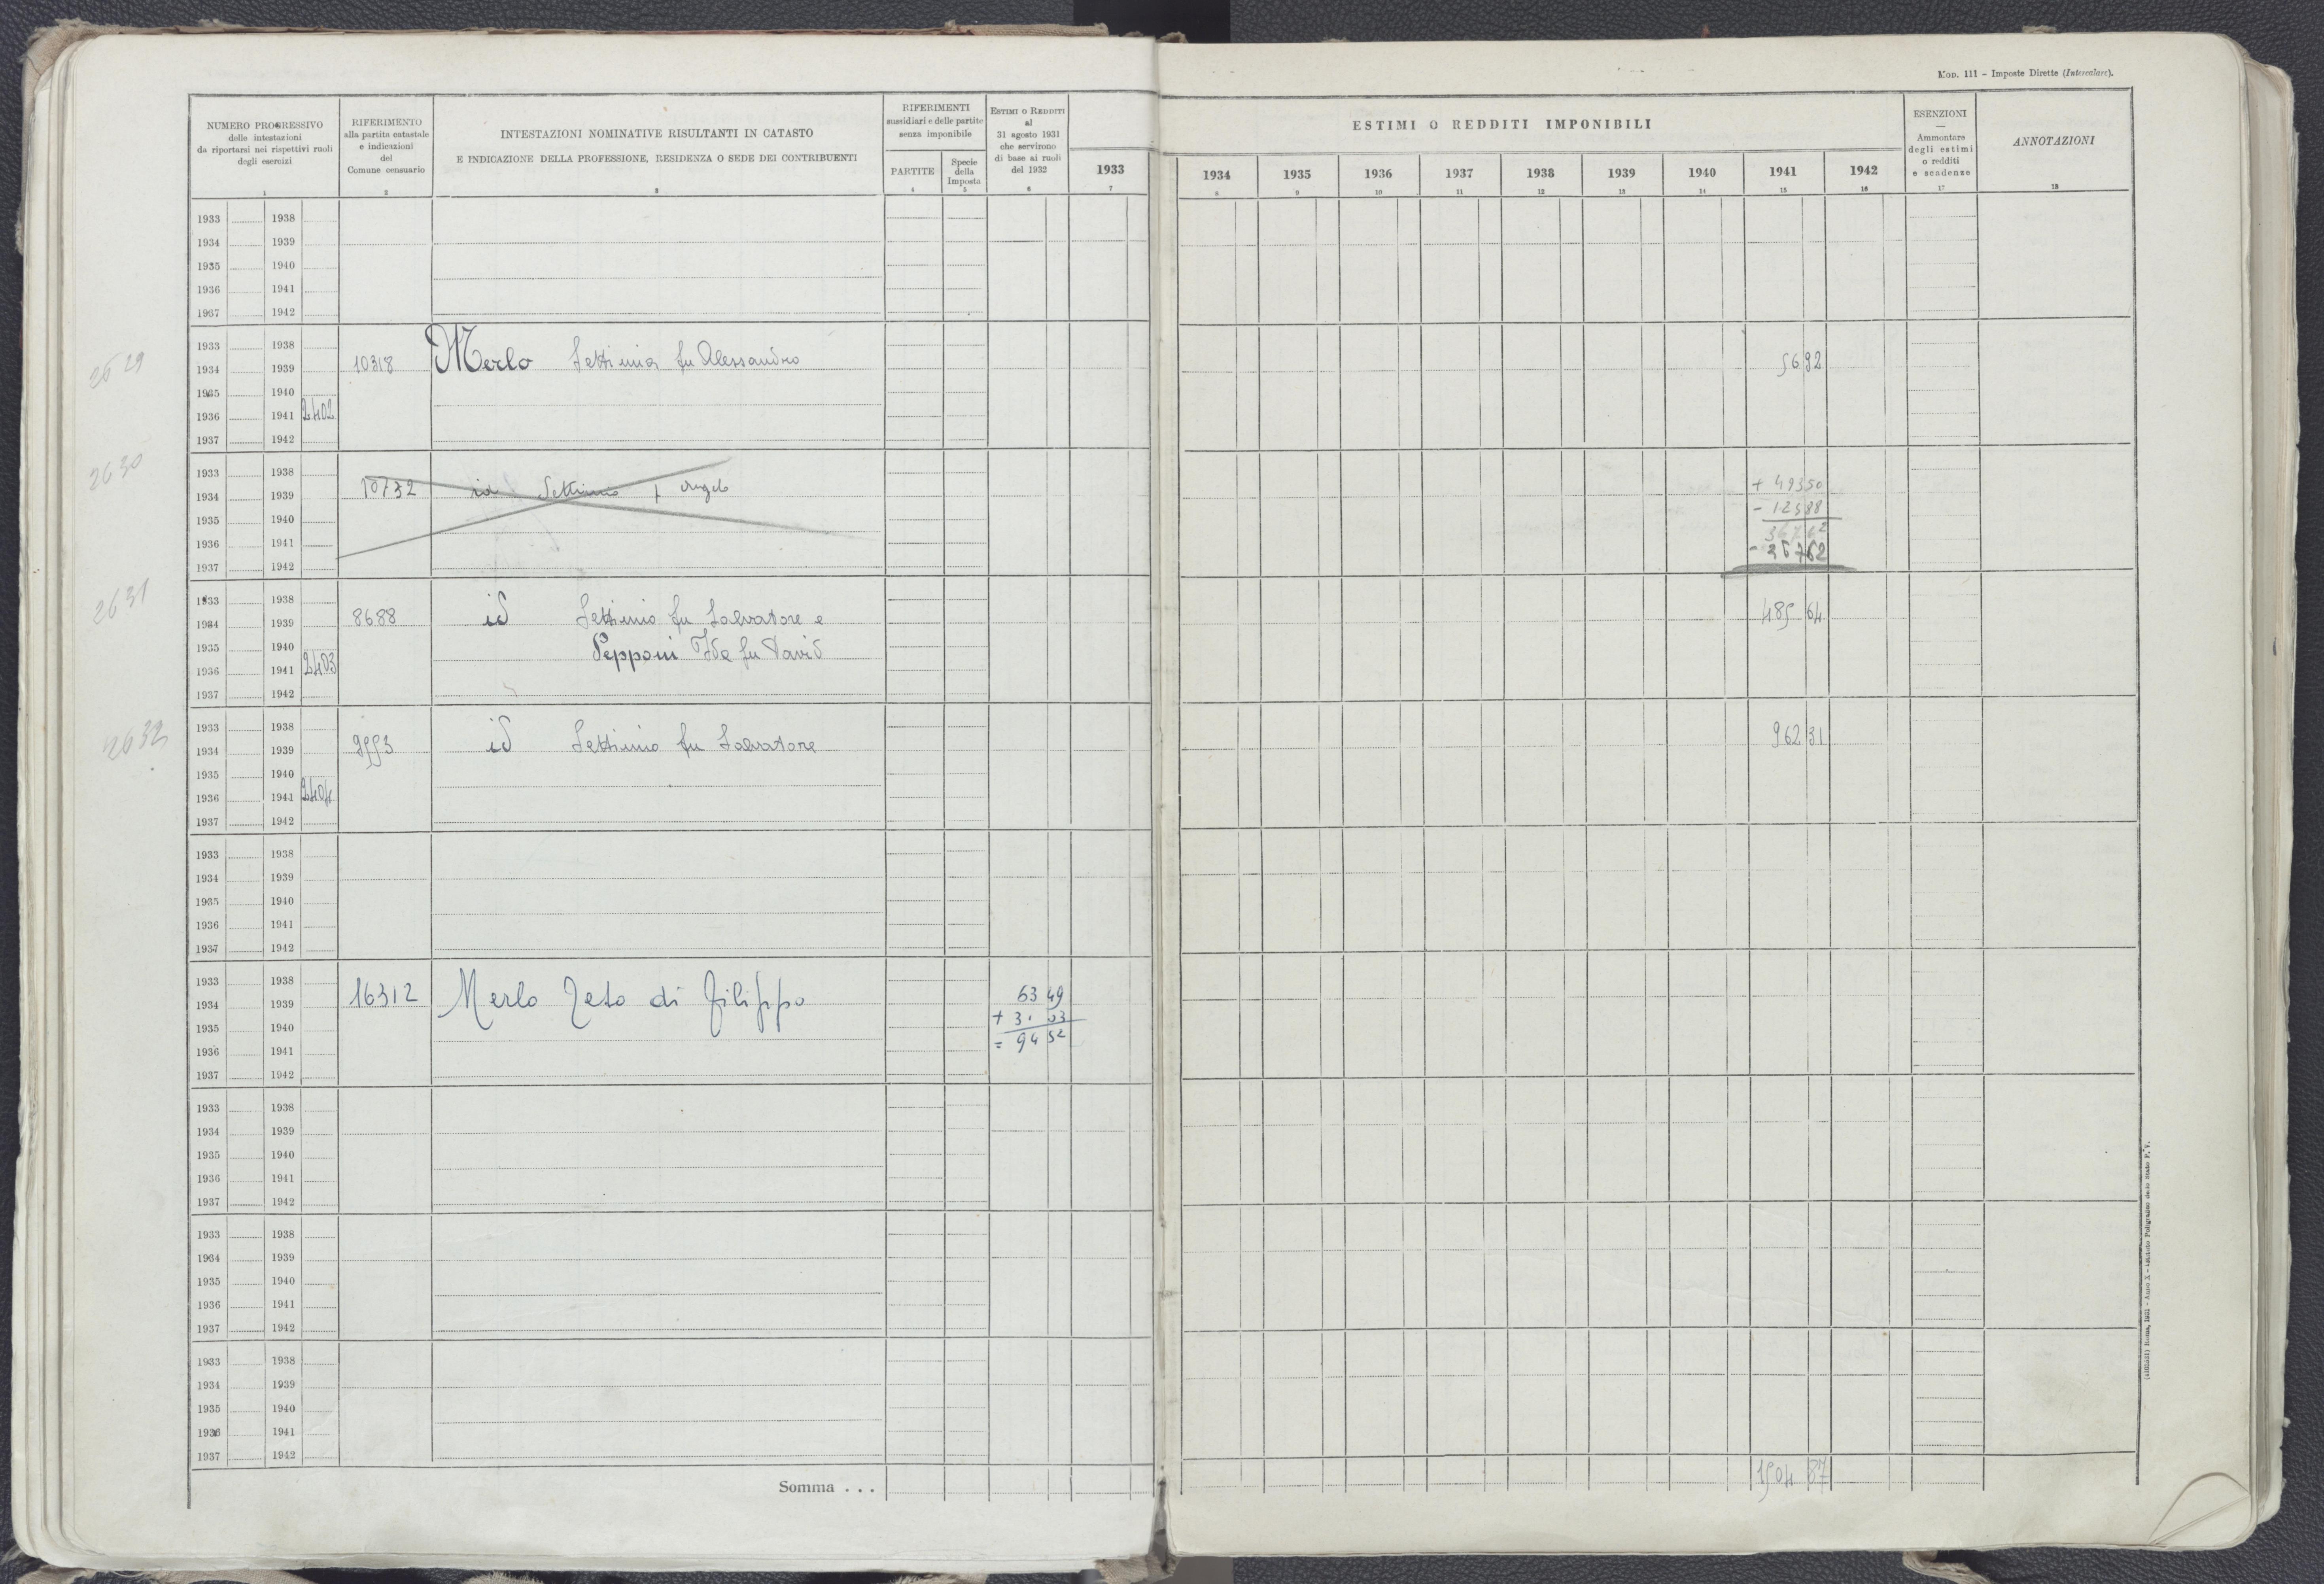 Mod. 111 - Imposte Dirette (Intercalare).
NUMERO PROGRESSIVO
delle intestazioni
da riportarsi nei rispettivi ruoli
degli esercizi
1
RIFERIMENTO
alla partita catastale
e indicazioni
del
Comune censuario
2
INTESTAZIONI NOMINATIVE RISULTANTI IN CATASTO
E INDICAZIONE DELLA PROFESSIONE, RESIDENZA O SEDE DEI CONTRIBUENTI
3
RIFERIMENTI
sussidiari e delle partite
senza imponibile
PARTITE
4
Specie
della
Imposta
5
ESTIMI O REDDITI
al
31 agosto 1931
che servirono
di base ai ruoli
del 1932
6
1933
7
ESTIMI O REDDITI IMPONIBILI
1934 1935 1936 1937 1938 1939 1940 1941 1942
8 9 10 11 12 13 14 15 16
ESENZIONI
—
Ammontare
degli estimi
o redditi
e scadenze
17
ANNOTAZIONI
18
1933 1938
1934 1939
1935 1940
1936 1941
1937 1942
2629
1933 1938
1934 1939 10318 Merlo Settimia fu Alessandro 56 92
1935 1940
1936 1941 2402
1937 1942
2630
1933 1938
1934 1939 10732 id Settimio f Angelo + 493 50
- 125 88
1935 1940
367 62
1936 1941
- 367 62
1937 1942
2631
1933 1938
1934 1939 8688 id Settimio fu Salvatore e 485 64
1935 1940
Pepponi Ida fu David
1936 1941 2403
1937 1942
2632
1933 1938
1934 1939 9553 id Settimio fu Salvatore 962 31
1935 1940
1936 1941 2404
1937 1942
1933 1938
1934 1939
1935 1940
1936 1941
1937 1942
1933 1938
1934 1939 16312 Merlo Zeto di Filippo 63 49
1935 1940 + 31 03
1936 1941 = 94 52
1937 1942
1933 1938
1934 1939
1935 1940
1936 1941
1937 1942
1933 1938
1934 1939
1935 1940
1936 1941
1937 1942
1933 1938
1934 1939
1935 1940
1936 1941
1937 1942
Somma . . . 1504 87